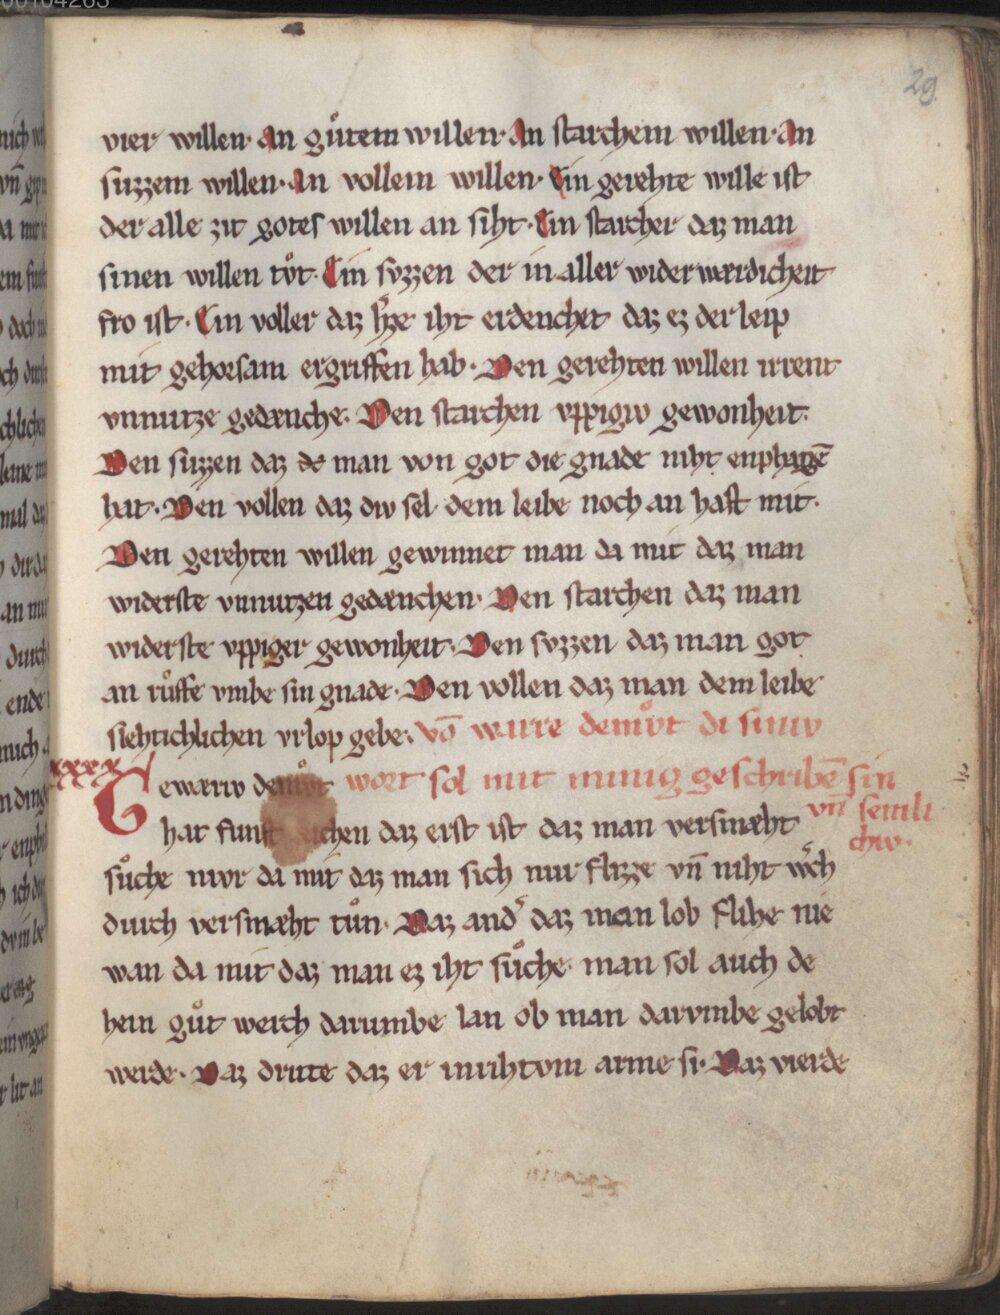 29
vier willen· An guͦtem willen· An starchem willen· An
suzzem willen· An vollem willen· Ein gerehte wille ist
der alle zit gotes willen an siht· Ein starcher daz man
sinen willen tuͦt· Ein svzzen der in aller widerwærdicheit
fro ist· Ein voller daz iht erdenchet daz ez der leip
mit gehorsam ergriffen hab· Den gerehten willen irrent
vnnutze gedænche· Den starchen vppigiv gewonheit·
Den suzzen daz man von got die gnade niht enphagē
hat· Den vollen daz div sel dem leibe noch an haft mit·
Den gerehten willen gewinnet man da mit daz man
widerste vnnutzen gedænchen· Den starchen daz man
widerste vppiger gewonheit· Den svzzen daz man got
an ruͦffe vmbe sin gnade· Den vollen daz man dem leibe
slehtichlichen vrlop gebe· Võ warre demuͦt di siniv
xxxx
Gewæriv demuͦt wort sol mit innig geschribē sin
vn̄ semli
chiv·
hat funf sachen daz erst ist daz man versmæht
suͦche niwr da mit daz man sich nur flizze vn̄ niht
durch versmæht tuͦn· Daz and' daz man lob flihe nie
wan da mit daz man ez iht suͦche· man sol auch de
hein guͦt werch darumbe lan ob man darvmbe gelobt
werde· Daz dritte daz er inrihtvm arme si· Daz vierde